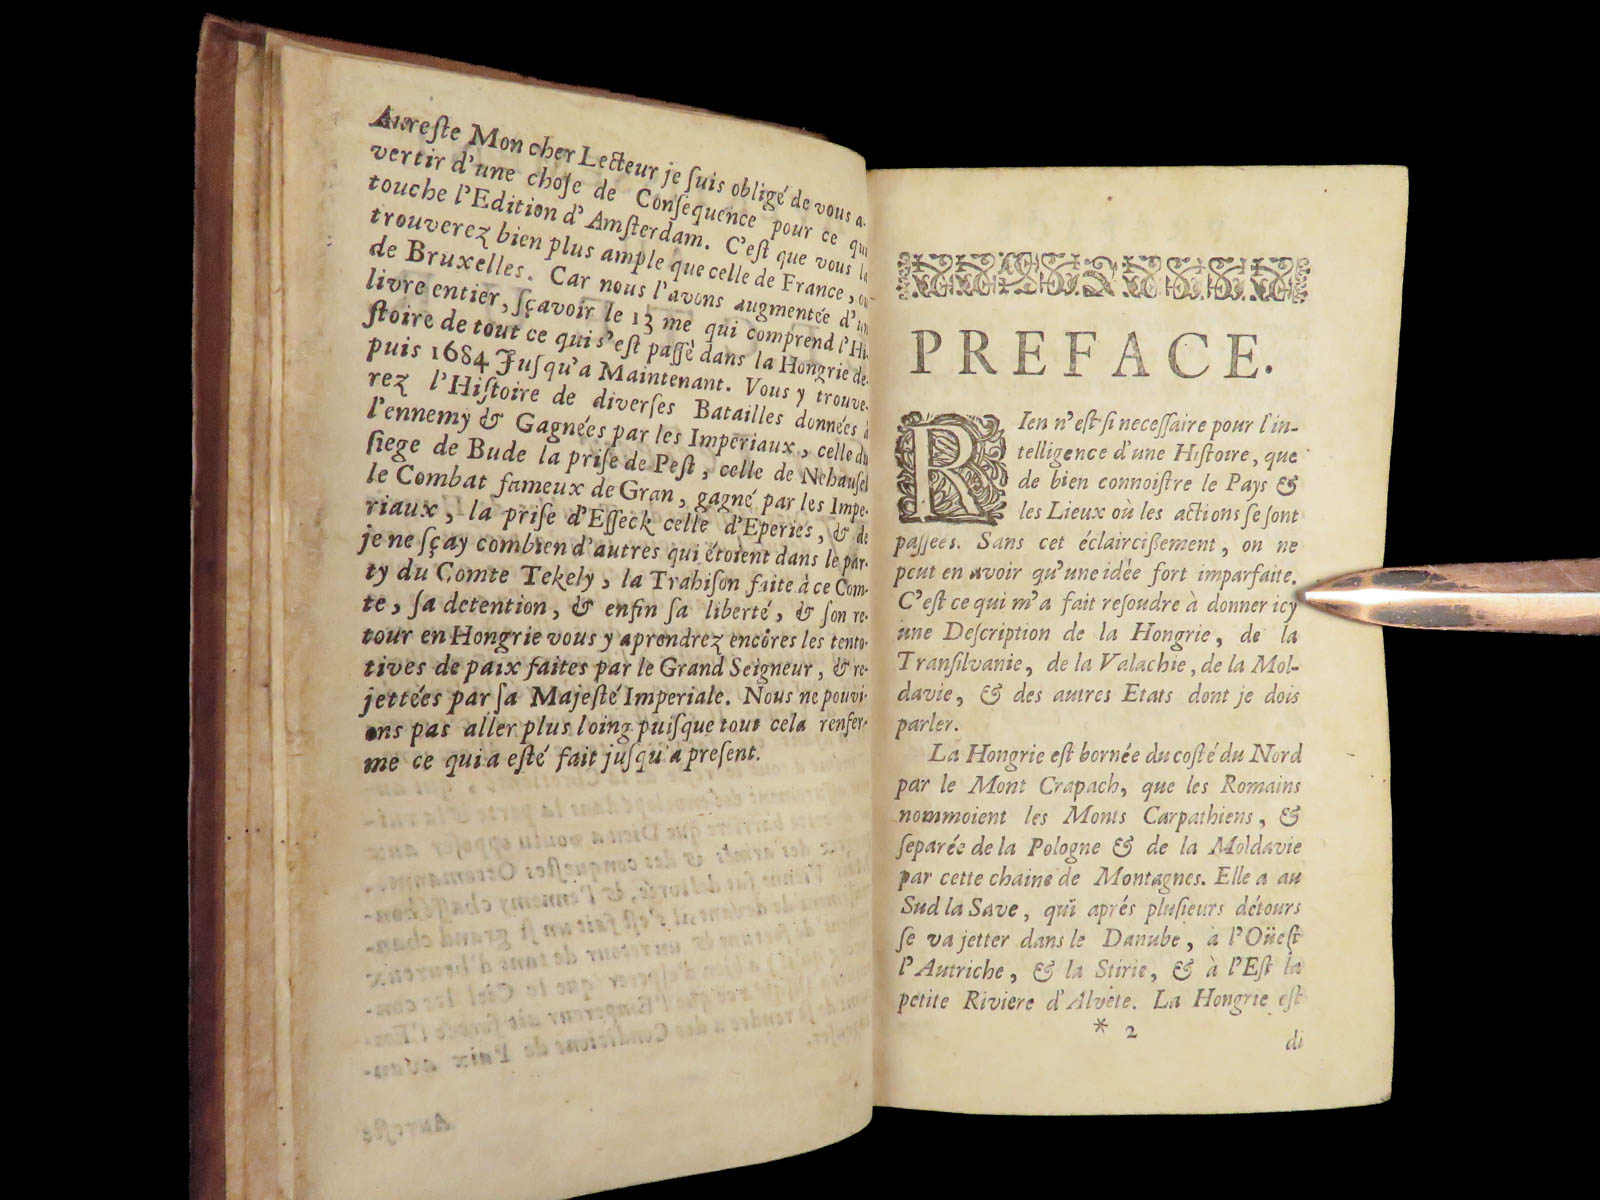 Aureſte Mon cher Lecteur je ſuis obligé de vous a-
vertir d'une choſe de Conſequence pour ce qui
touche l'Edition d'Amſterdam. C'eſt que vous la
trouverez bien plus ample que celle de France, ou
de Bruxelles. Car nous l'avons augmentée d'un
livre entier, ſçavoir le 13 me qui comprend l'Hi-
ſtoire de tout ce qui s'eſt paſſé dans la Hongrie de-
puis 1684 Juſqu'a Maintenant. Vous y trouve-
rez l'Hiſtoire de diverſes Batailles données à
l'ennemy & Gagnées par les Imperiaux, celle du
ſiege de Bude la priſe de Peſt, celle de Nehauſel
le Combat fameux de Gran, gagné par les Impe-
riaux, la priſe d'Eſſeck celle d'Eperies, & de
je ne ſçay combien d'autres qui étoient dans le par-
ty du Comte Tekely, la Trahiſon faite à ce Com-
te, ſa detention, & enfin ſa liberté, & ſon re-
tour en Hongrie vous y aprendrez encôres les tenta-
tives de paix faites par le Grand Seigneur, & re-
jettées par ſa Majeſté Imperiale. Nous ne pouvi-
ons pas aller plus loing puiſque tout cela renfer-
me ce qui a eſté fait juſqu'a preſent.
PREFACE.
RIen n'eſt ſi neceſſaire pour l'in-
telligence d'une Hiſtoire, que
de bien connoiſtre le Pays &
les Lieux où les actions ſe ſont
paſſées. Sans cet éclairciſſement, on ne
peut en avoir qu'une idée fort imparfaite.
C'eſt ce qui m'a fait reſoudre à donner icy
une Deſcription de la Hongrie, de la
Tranſilvanie, de la Valachie, de la Mol-
davie, & des autres Etats dont je dois
parler.
La Hongrie eſt bornée du coſté du Nord
par le Mont Crapach, que les Romains
nommoient les Monts Carpathiens, &
ſeparée de la Pologne & de la Moldavie
par cette chaine de Montagnes. Elle a au
Sud la Save, qui aprés pluſieurs détours
ſe va jetter dans le Danube, à l'Oüeſt
l'Autriche, & la Stirie, & à l'Eſt la
petite Riviere d'Alvete. La Hongrie eſt
* 2
di